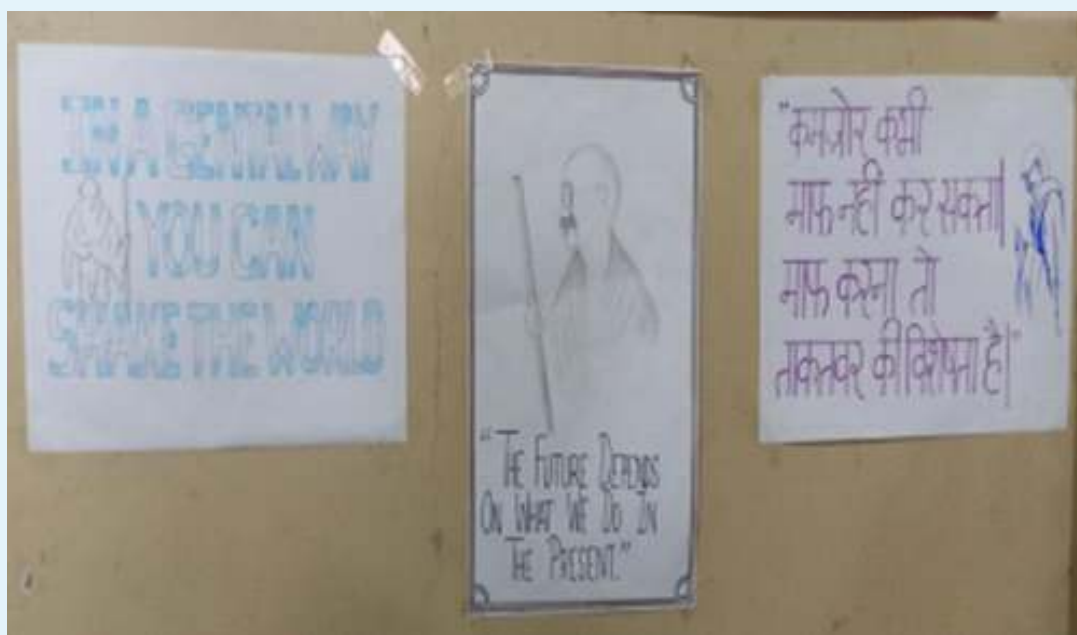 IN A GENTLE WAY
YOU CAN
SHAKE THE WORLD
"THE FUTURE DEPENDS
ON WHAT WE DO IN
THE PRESENT."
"कमजोर कभी
माफ नही कर सकता।
माफ करना तो
ताकतवर की विशेषता है।"